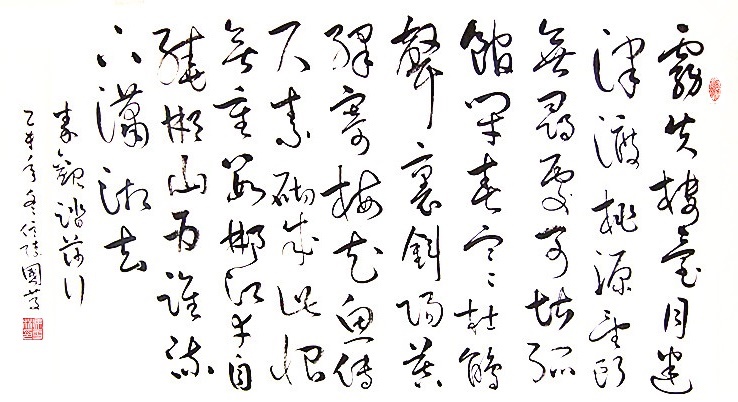 霧失樓臺月迷
津渡桃源望斷
無尋處可堪孤
館閉春寒杜鵑
聲裏斜陽暮
驛寄梅花魚傳
尺素砌成此恨
無重數郴江幸自
繞郴山為誰流
下瀟湘去
秦觀踏莎行
乙未年冬國